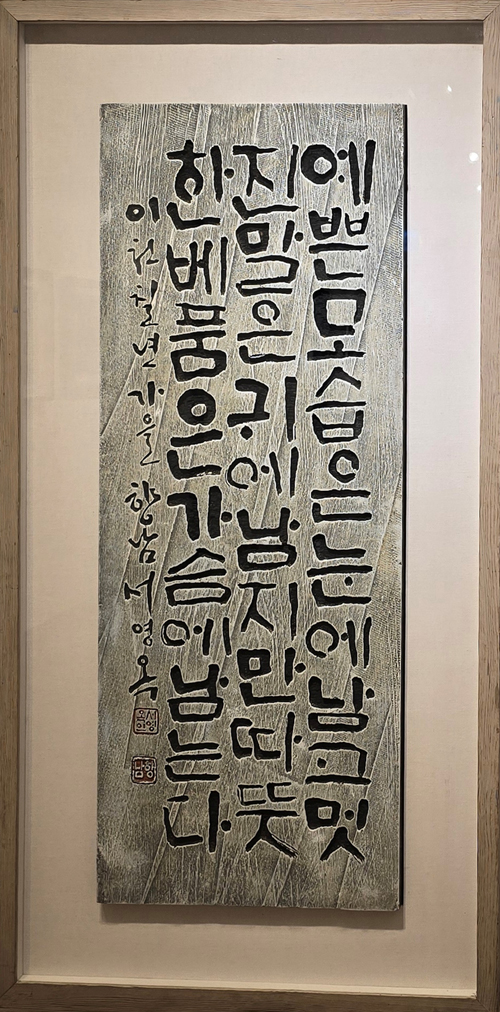 예쁜모습은눈에남고멋
진말은귀에남지만따뜻
한베품은가슴에남는다
이천칠년가을 향남서영옥
서영옥인
향남